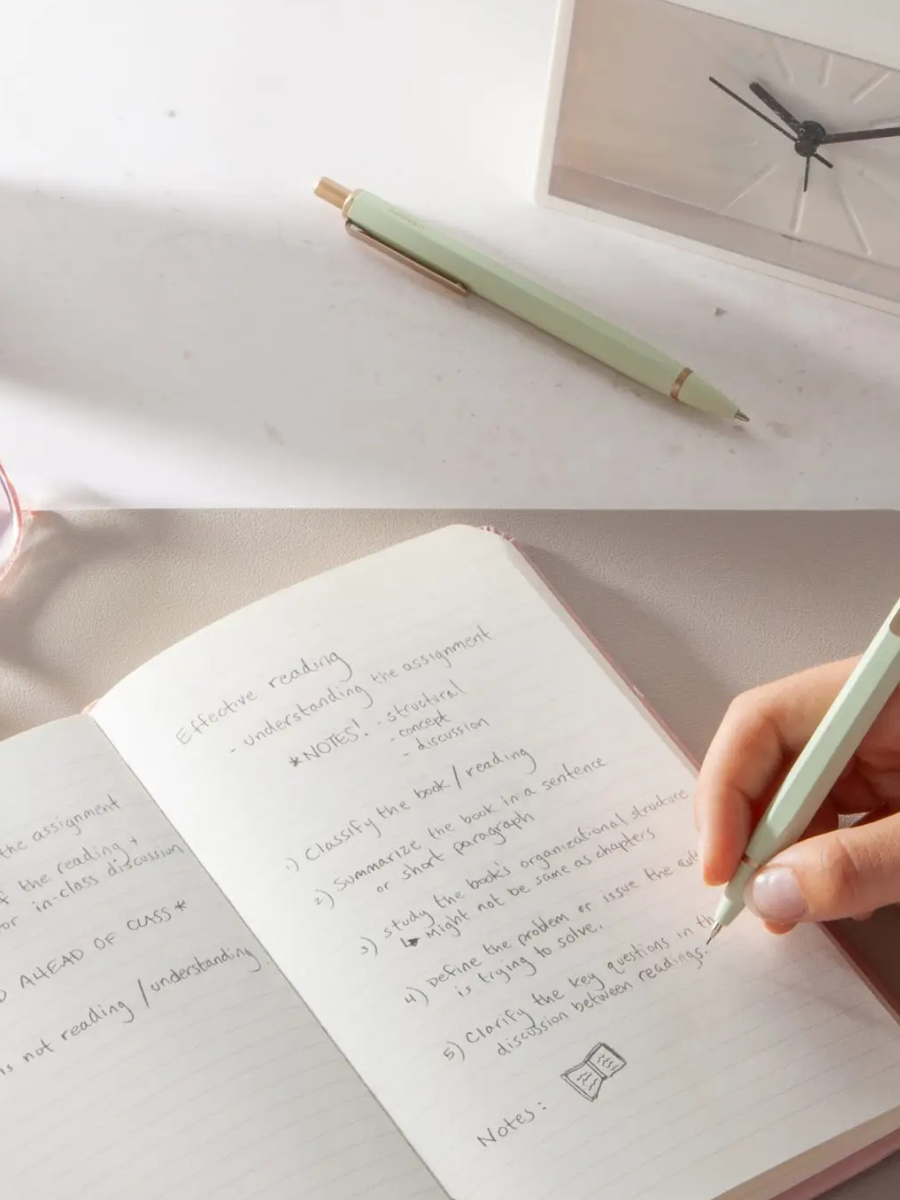 the assignment
the reading +
or in-class discussion
AHEAD OF CLASS*
is not reading / understanding
Effective reading
- understanding the assignment
*NOTES! - structural
- concept
- discussion
1) Classify the book / reading
2) Summarize the book in a sentence
or short paragraph
3) study the book's organizational structure
might not be same as chapters
4) Define the problem or issue the
is trying to solve.
5) Clarify the key questions in
discussion between readings.
Notes: